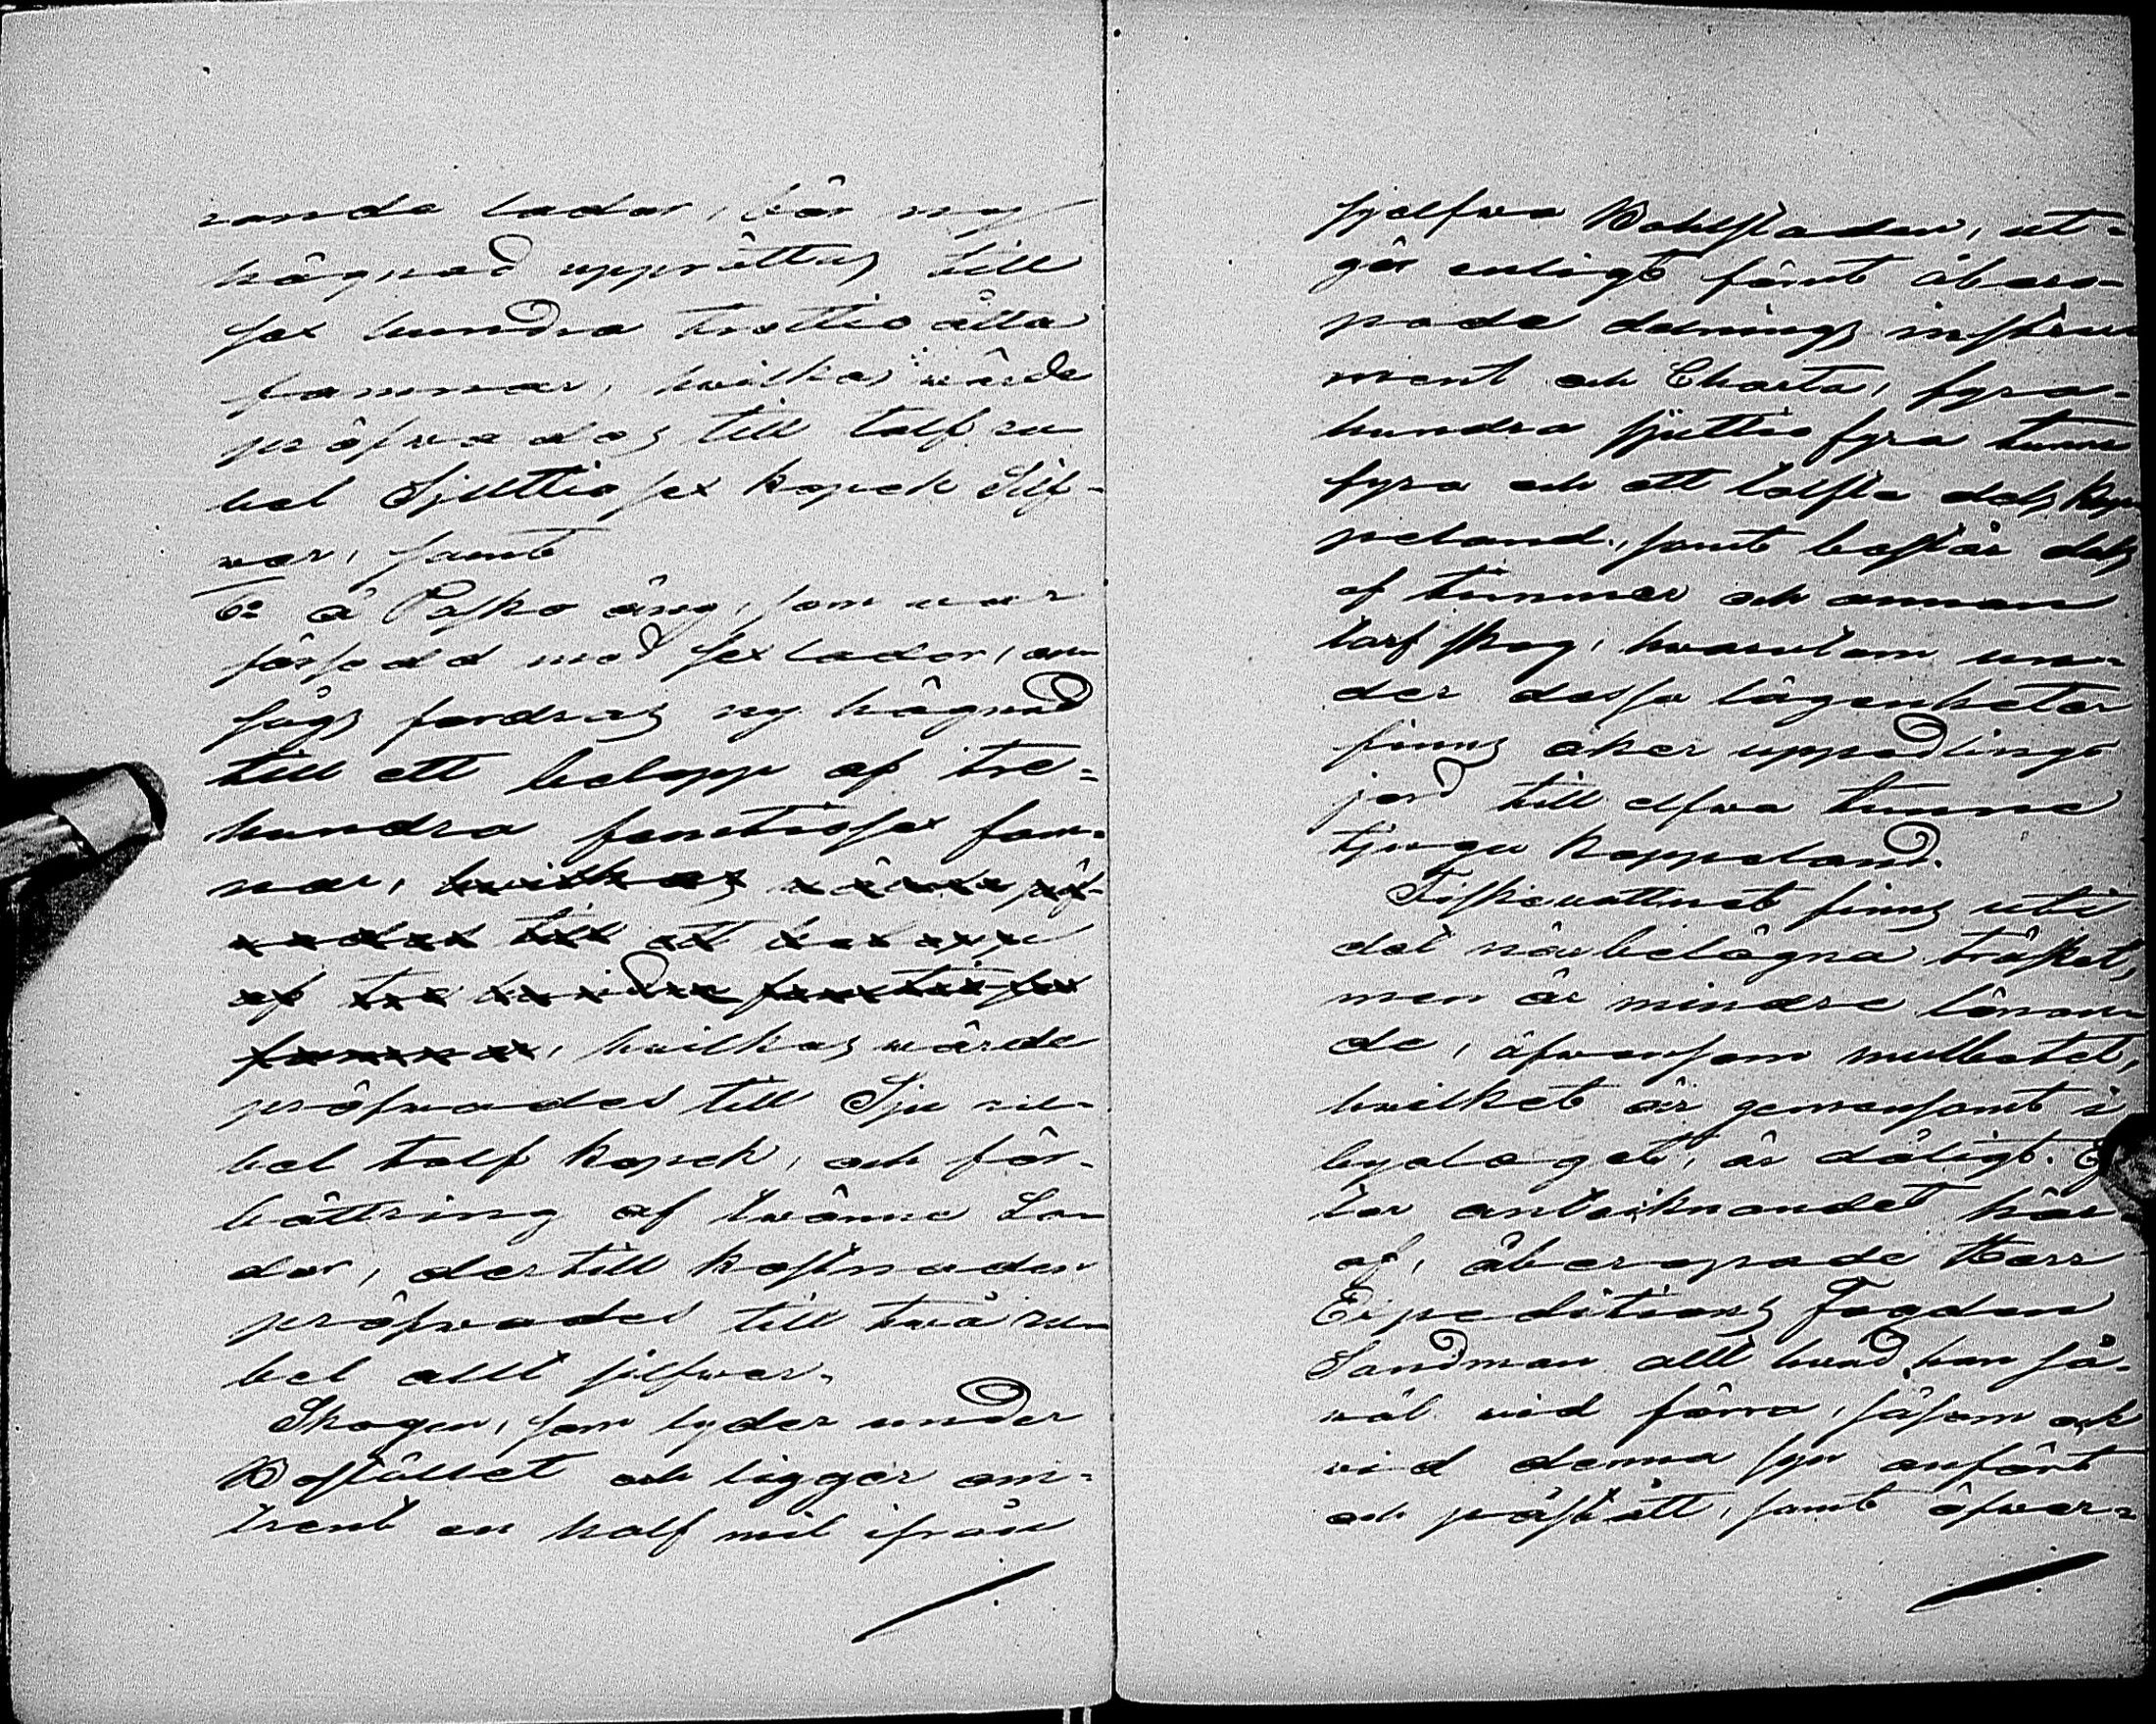 rande lador, bör ny
hägnad upprättas till
sex hundra trettio åtta
famnar, hvilkas värde
pröfvades till tolf ru-
bel Sjuttiosex kopek Silf-
ver, samt
6o å Paskoäng, som var
försedd med sex lador, an-
sågs fordras ny hägnad
till ett belopp af tre-
hundra femtiosex fam-
nar, hvilkas värde pröf-
vades till ett belopp
af tre hundra femtiosex
famnar, hvilkas värde
pröfvades till Sju ru-
bel tolf kopek, och för-
bättring af tvänne La-
dor, dertill kostnaden
pröfvades till två ru-
bel allt silfver.
Skogen, som lyder under
Boställlet och ligger om-
trent en half mil ifrån
sjelfva Bohlstaden, ut-
gör enligt sämt åbero-
pade delnings instru-
ment och Charta, fyra-
hundra sjuttio fyra tunne
fyra och ett tolfte dels kap-
peland, samt består dels
af timmer och annan
tarf skog, hvarutom un-
der dessa lägenheter
finns åker uppodlings
jord till elfva tunne
tjugu kappeland.
Fiskevattnet finns uti
det närbelägna träsket,
men är mindre lönan-
de, äfvensom mulbetet,
hvilket är gemensamt i
byalaget, är dåligt. Ef-
ter antecknandet här-
af, åberopade Herr
Expeditions Fogden
Sandman allt hvad han så-
väl vid förra, såsom ock
vid denna syn anfört
och påstått, samt öfver-